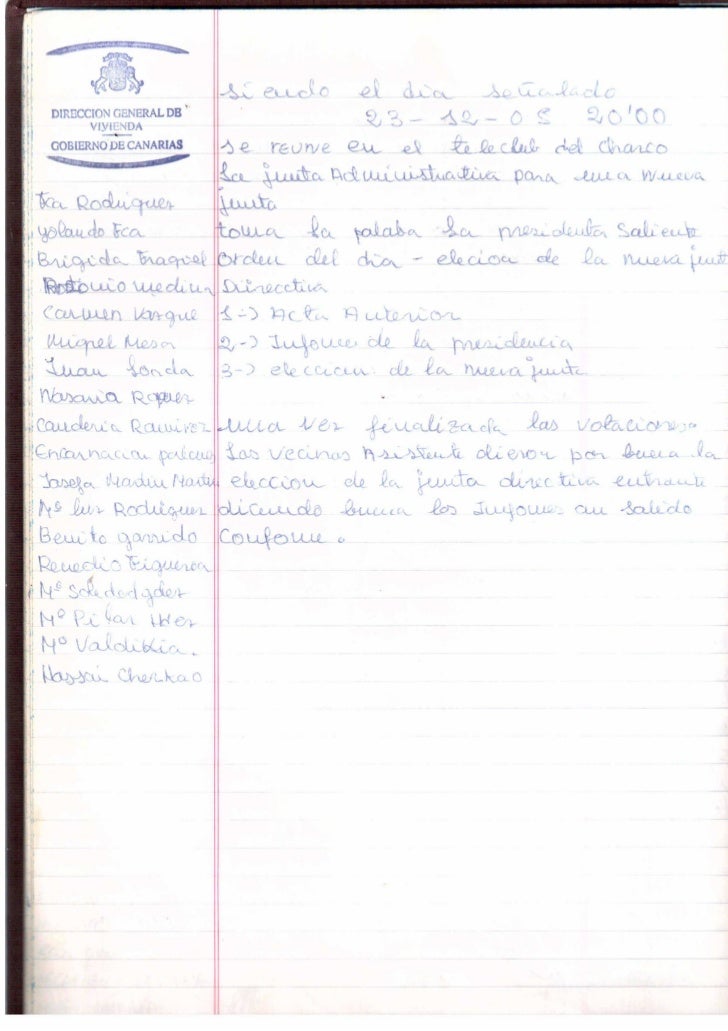 DIRECCION GENERAL DE
VIVIENDA
GOBIERNO DE CANARIAS
siendo el dia señalado
23-12-05 20'00
se reune en el teleclub del Charco
La junta Administractiva para una nueva
junta
toma la palaba la presidenta Saliente
orden del dia - elecion de la nueva junt
Direcctiva
1-> Acta Anterior
2-> Infome de la presidencia
3-> eleccion de la nueva junta
una vez finalizada las votaciones.
Las vecinas Asistente dieron por buena la
eleccion de la junta directiva entrante
diciendo buena los Infomes an salido
confome.
Fca Rodriguez
Yolando Fca
Brigida Fraguel
Antonio medina
Carmen Vasque
Miguel Mesa
Juan
Nasaria
Canderia Ramirez
Encarnacion
Josefa Martin Martin
Mª luz Rodriguez
Benito garrido
Remedio Figueroa
Mª Soledad gdez
Mª Pilar
Mª Valdikia.
Hassai Cherkao